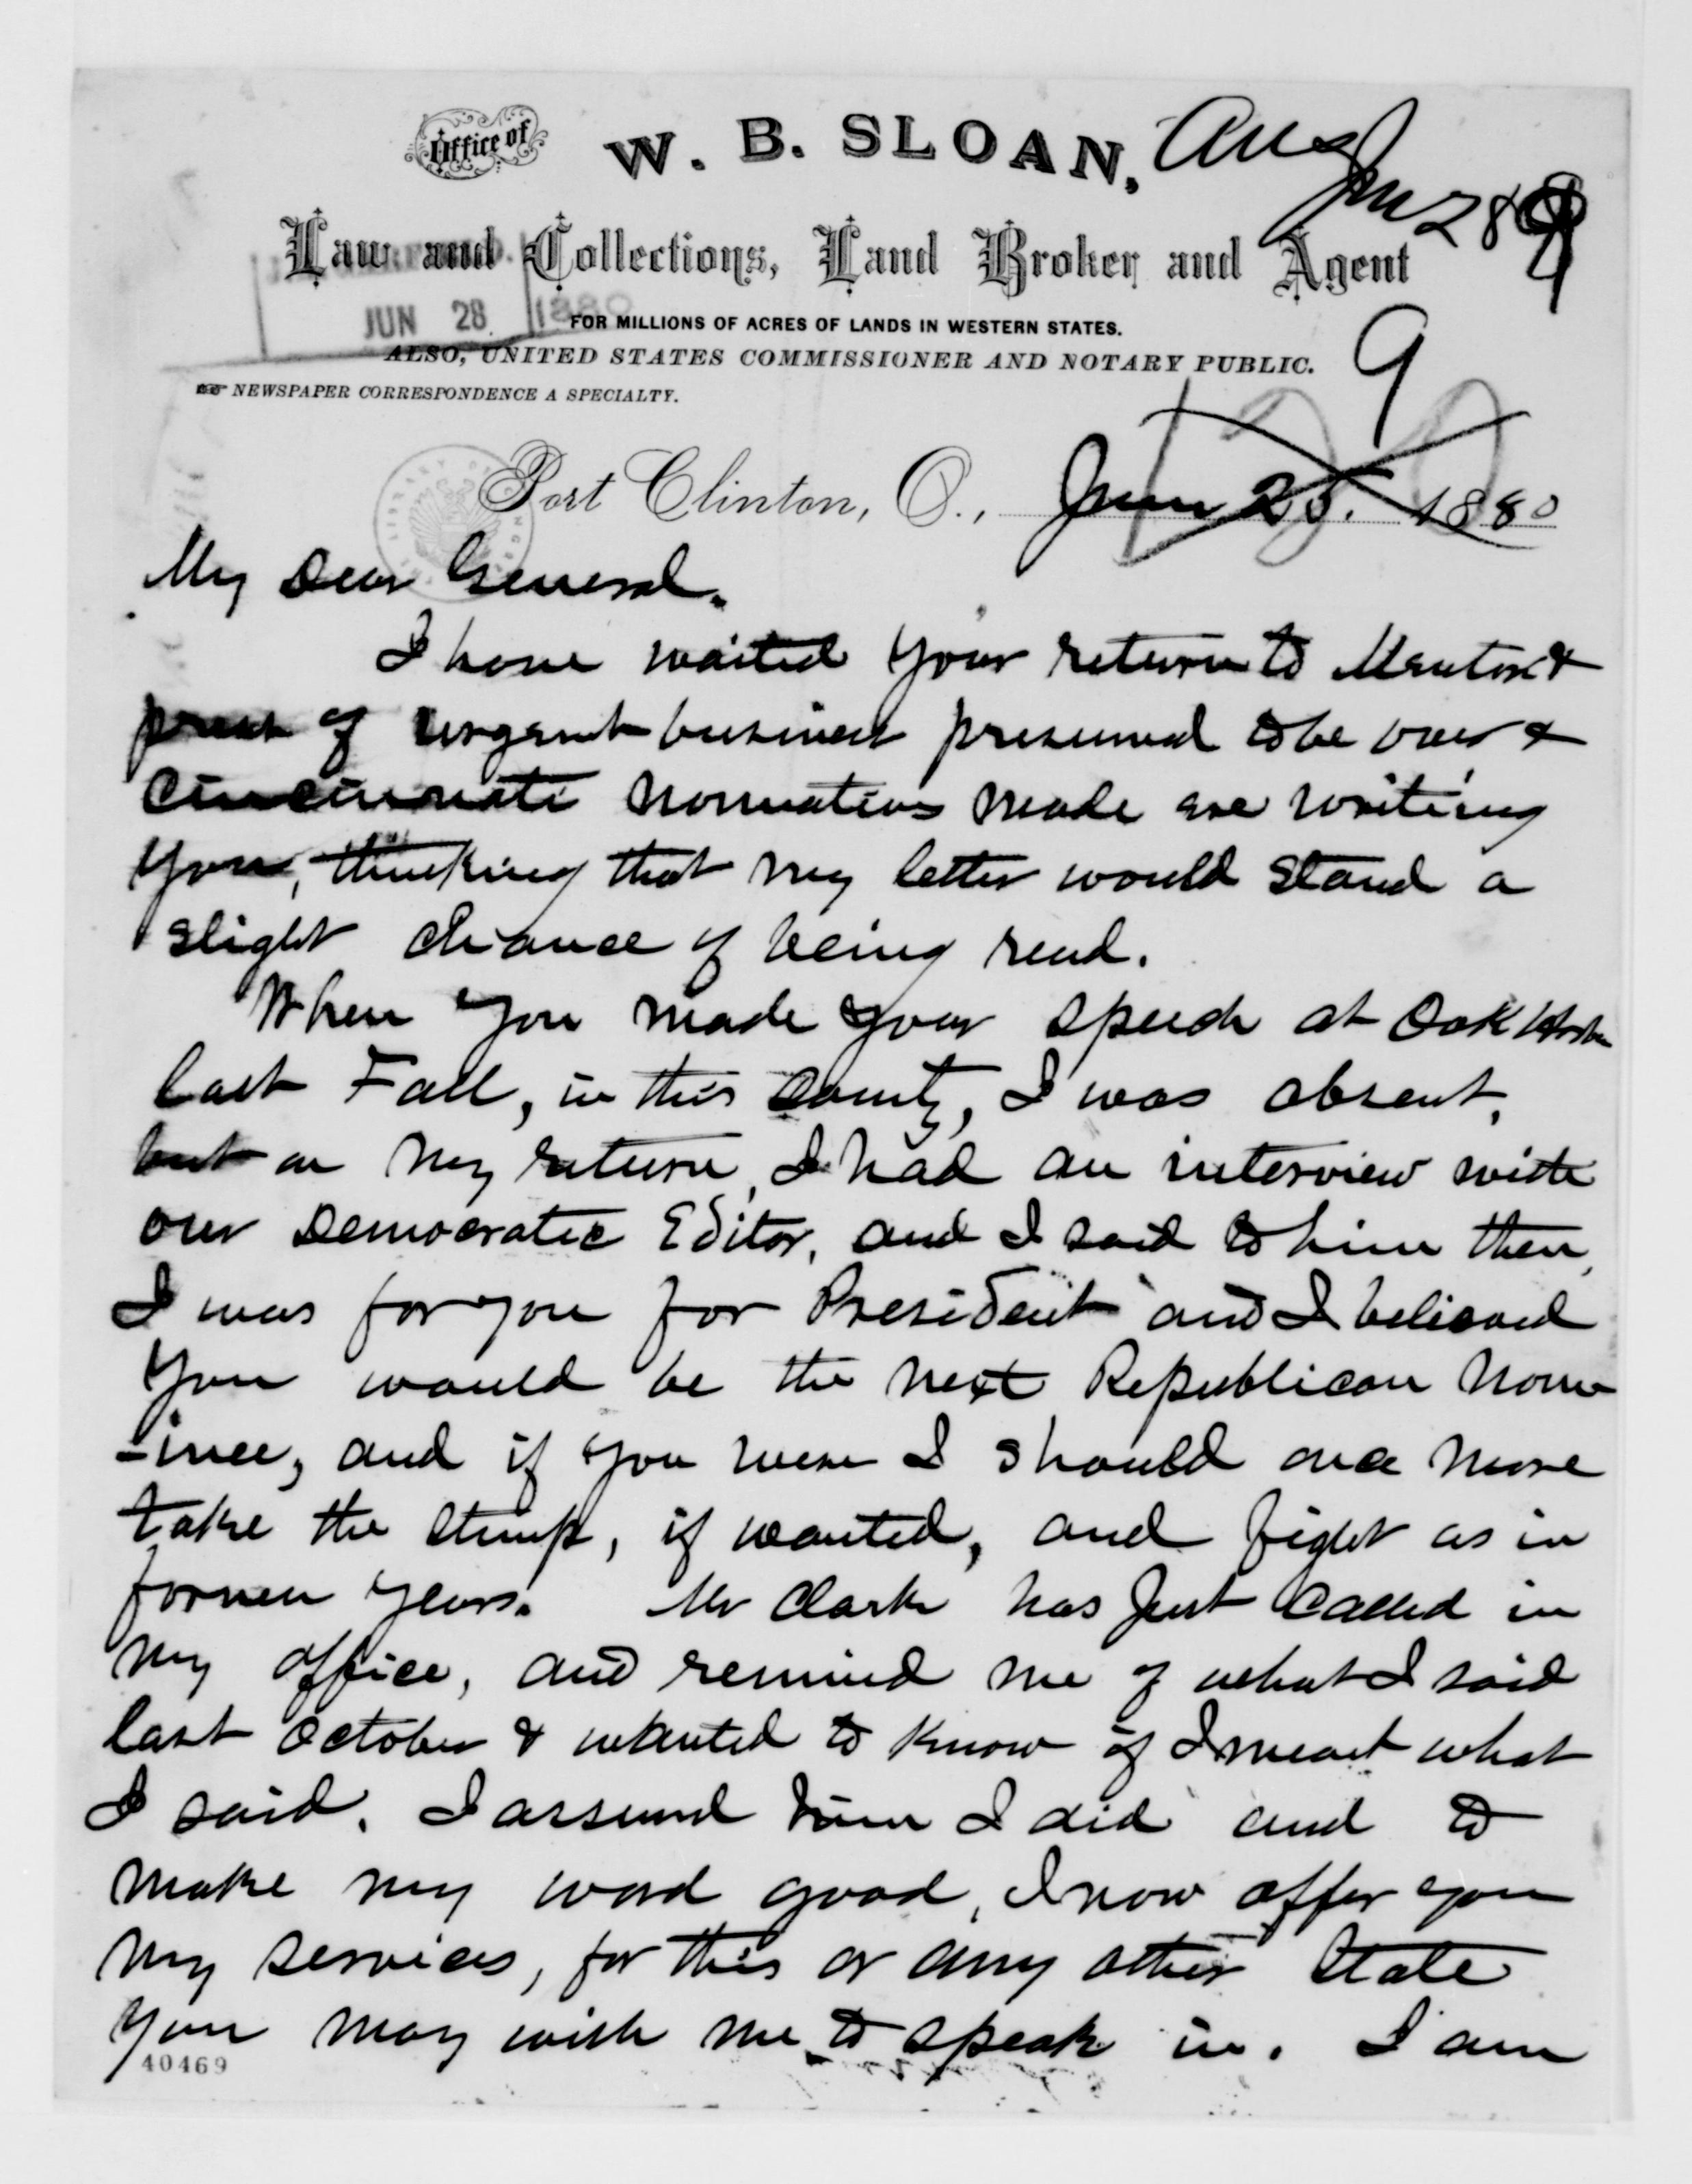 Office of W. B. SLOAN,
Ans
Jun 28
Law and Collections, Land Broker and Agent
JUN 28 1880
FOR MILLIONS OF ACRES OF LANDS IN WESTERN STATES.
ALSO, UNITED STATES COMMISSIONER AND NOTARY PUBLIC.
9
NEWSPAPER CORRESPONDENCE A SPECIALTY.
Port Clinton, O., June 25. 1880
My Dear General.
I have waited your return to Mentor &
press of urgent business presumed to be over &
Cincinnati nominations made ere writing
you, thinking that my letter would stand a
slight chance of being read.
When you made your speech at Oak Harbor
last Fall, in this County, I was absent,
but on my return, I had an interview with
our Democratic Editor, and I said to him then,
I was for you for President and I believed
you would be the next Republican nom-
-inee, and if you were I should once more
take the stump, if wanted, and fight as in
former years. Mr Clark has just called in
my office, and remind me of what I said
last October & wanted to know if I meant what
I said. I assured him I did and to
make my word good, I now offer you
my services, for this or any other State
you may wish me to speak in. I am
40469